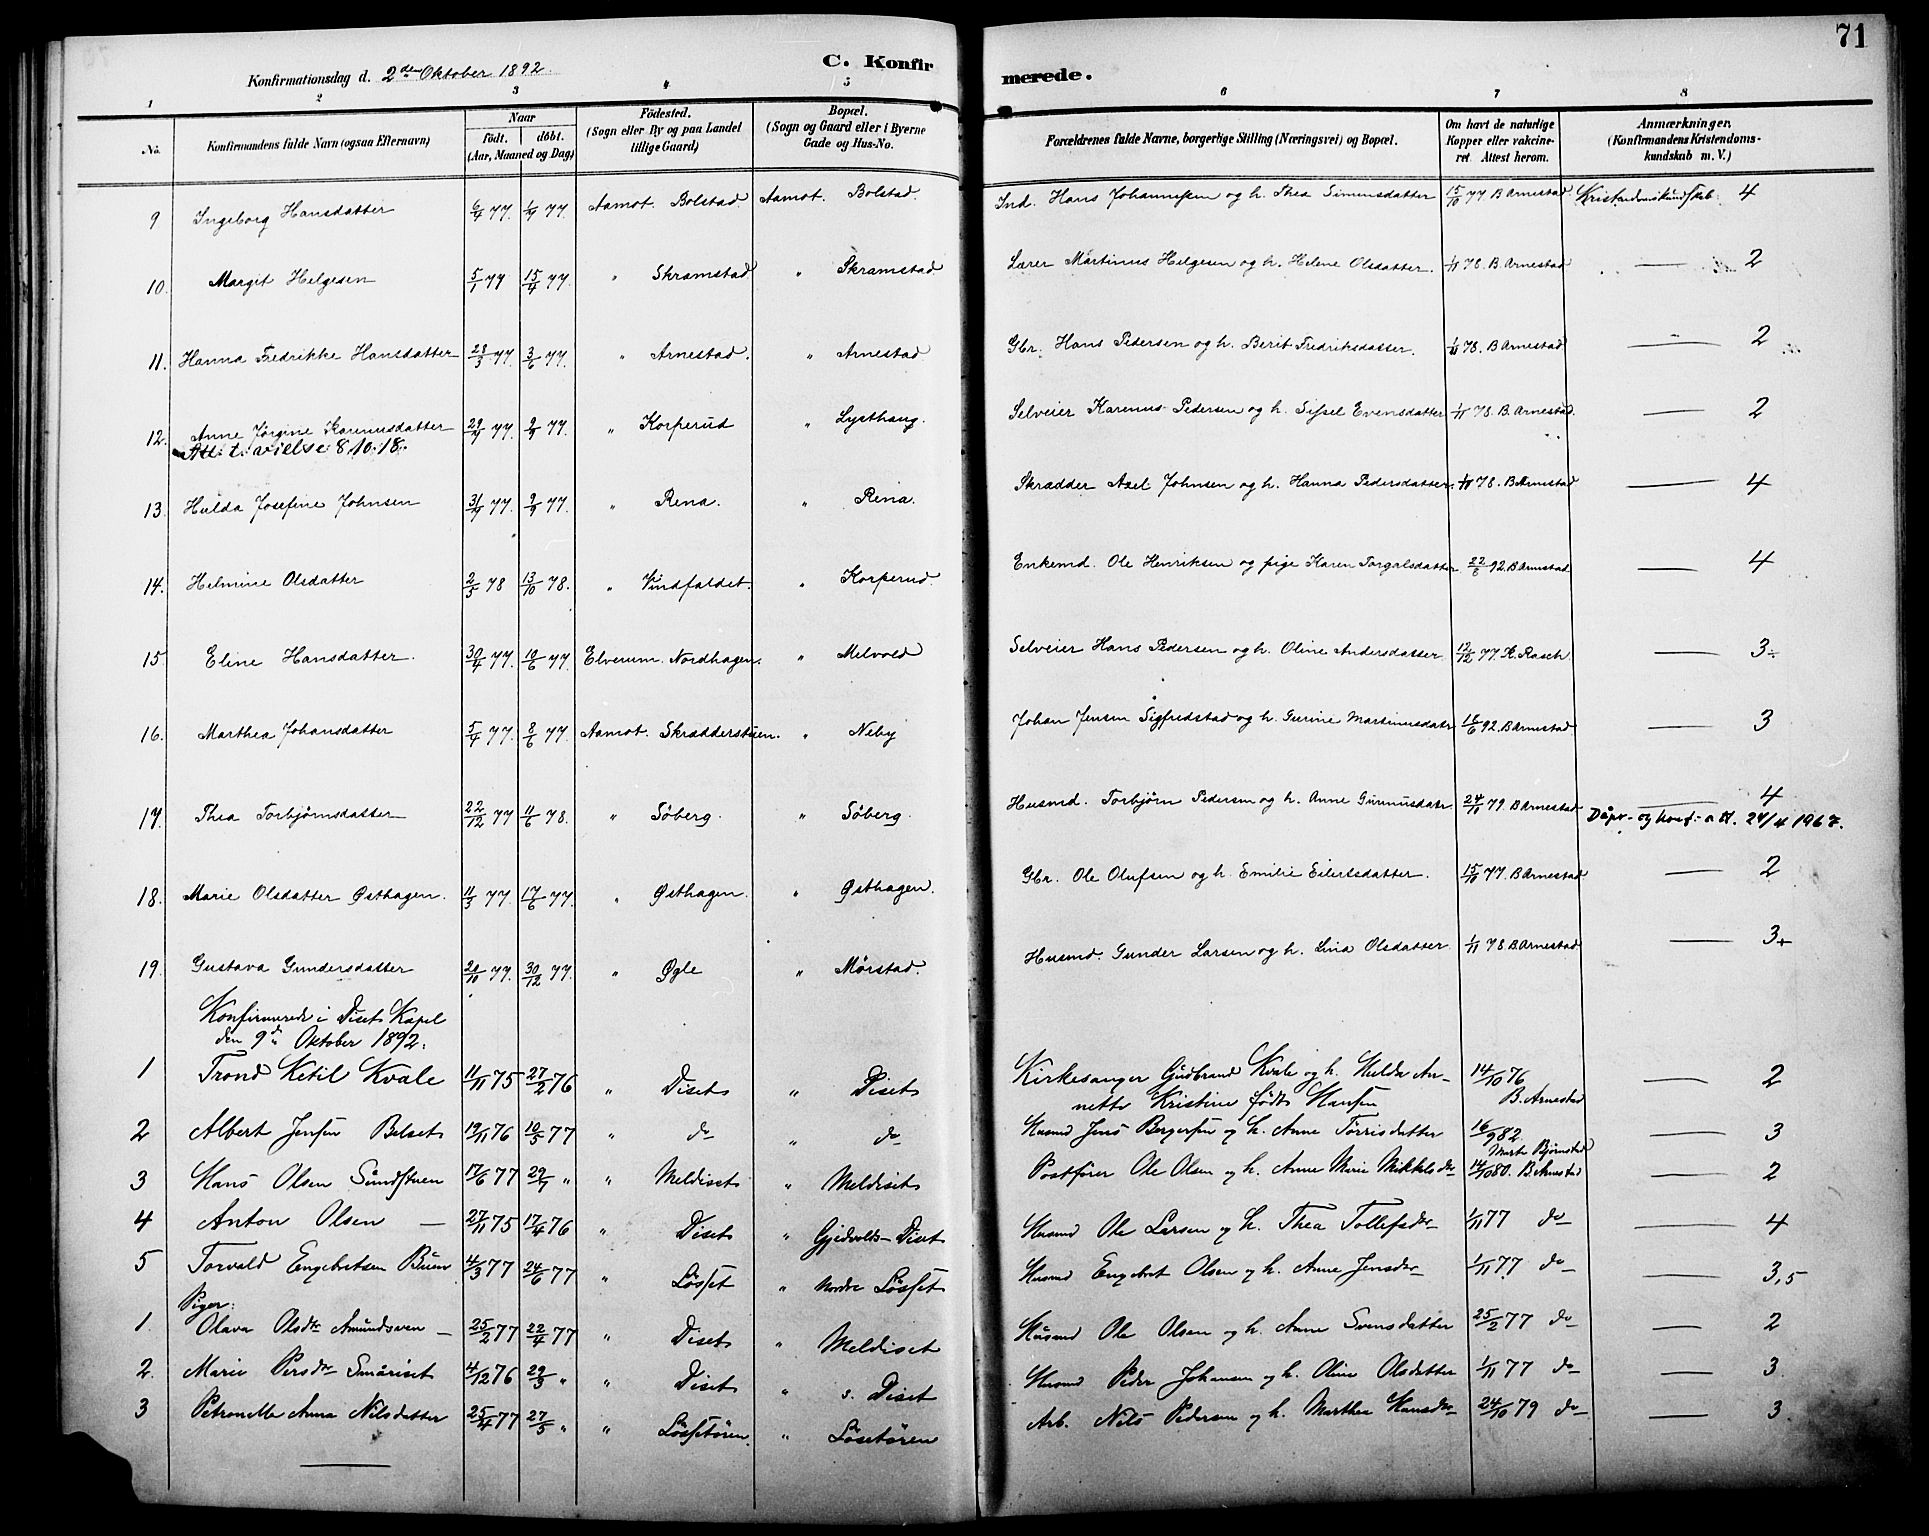 71
Konfirmationsdag d. 2den Oktober 1892. C. Konfirmerede.
1 2 3 4 5 6 7 8
No. Konfirmandens fulde Navn (ogsaa Efternavn) Naar født. døbt. (Aar, Maaned og Dag) Födested. (Sogn eller By og paa Landet tillige Gaard) Bopæl. (Sogn og Gaard eller i Byerne Gade og Hus-No. Forældrenes fulde Navne, borgerlige Stilling (Næringsvei) og Bopæl. Om havt de naturlige Kopper eller vakcineret. Attest herom. Anmærkninger. (Konfirmandens Kristendomskundskab m. V.)
9 Ingeborg Hansdatter 6/4 77. 77. Aamot. Bolstad. Aamot. Bolstad. Ind. Hans Johannessen og h. Thea Simensdatter 15/10 77 B Arnestad. Kristendomskundskab: 4
10. Margit Helgesen 5/1 77 15/4 77. " Skramstad " Skramstad Lærer Martinus Helgesen og h. Helene Olsdatter. 1/11 78. B. Arnestad — 2
11. Hanna Fredrikke Hansdatter 28/3 77. 3/6 77. " Arnestad. " Arnestad Gbr. Hans Pedersen og h. Berit Fredriksdatter. 1/11 78. B Arnestad — 2
12. Anne Jørgine Karenusdatter 29/7 77. 9/9 77. " Korperud " Lysthaug. Selveier Karenus Pedersen og h. Sissel Evensdatter 1/11 78. B. Arnestad. — 2
Att. t. vielse 8.10.18.
13. Hulda Josefine Johnsen 31/7 77. 9/9 77. " Rena. " Rena. Skrædder Axel Johnsen og h. Hanna Pedersdatter. 1/11 78. B Arnestad — 4
14. Helmine Olsdatter 2/5 78 13/10 78. " Vindfaldet. " Korperud. Enkemd. Ole Henriksen og pige Karen Torgalsdatter 22/6 92. B Arnestad — 4
15. Eline Hansdatter. 30/4 77. 10/6 77. Elverum. Nordhagen. " Melvold Selveier Hans Pedersen og h. Oline Andersdatter 12/12 77. K. Rasch. — 3÷
16. Marthea Johansdatter 5/4 77. 8/6 77. Aamot. Skrædderstuen. " Neby Johan Jensen Sigfredstad og h. Gurine Martinusdatr. 16/6 92. B Arnestad — 3
17. Thea Torbjørnsdatter 22/12 77 11/6 78. " Söberg. " Söberg. Husmd. Torbjörn Pedersen og h. Anne Gunnusdatr. 24/10 79 B Arnestad — 4
Dåps- og konf.- att. 24/4 1967.
18. Marie Olsdatter Østhagen. 11/3 77. 17/6 77. " Østhagen. " Østhagen. Gbr. Ole Olufsen og h. Emilie Eilertsdatter. 15/10 77. B Arnestad — 2
19. Gustava Gundersdatter 20/10 77. 30/12 77. " Øgle " Mørstad. Husmd. Gunder Larsen og h. Lina Olsdatter. 1/11 78 B Arnestad — 3+
Konfirmerede i Diset Kapel
den 9de Oktober 1892.
1 Trond Ketil Kvale 11/11 75 27/2 76 " Diset " Diset Kirkesanger Gudbrand Kvale og h. Hulda Annette Kristine født Hansen 14/10 76 B. Arnestad — 2
2 Albert Jensen Belset 19/11 76 10/5 77 " do " do Husmd Jens Bergersen og h. Anne Törrisdatter 16/9 82. Marte Bjørnstad — 3
3 Hans Olsen Sundstuen 17/6 77 29/7 " " Meldiset " Meldiset Postfører Ole Olsen og h. Anne Marie Mikkelsdr 14/10 80. B. Arnestad — 2
4 Anton Olsen — 27/11 75 17/4 76 " Diset " Gjedvolds-Diset Husmd Ole Larsen og h. Thea Tollefsdr 1/11 77 do — 4
5 Torvald Engebretsen Buen 4/3 77 24/6 77 " Lösset " Nordre Lösset Husmd Engebret Olsen og h. Anne Jensdr 1/11 77. do — 3,5
Piger:
1. Olava Olsdtr Amundsven — 25/2 77 22/4 77 " Diset " Meldiset Husmd Ole Olsen og h. Anne Svensdatter 25/2 77 do — 2
2. Marie Persdtr Småriset 4/12 76 29/3 " " Diset " s. Diset Husmd Peder Johansen og h. Oline Olsdatter 1/11 77 do — 3.
3 Petronella Anna Nilsdatter 25/4 77 27/5 " " Lössetören. " Lösetören Arb. Nils Pedersen og h. Marthea Hansdr 24/10 79 do — 3.